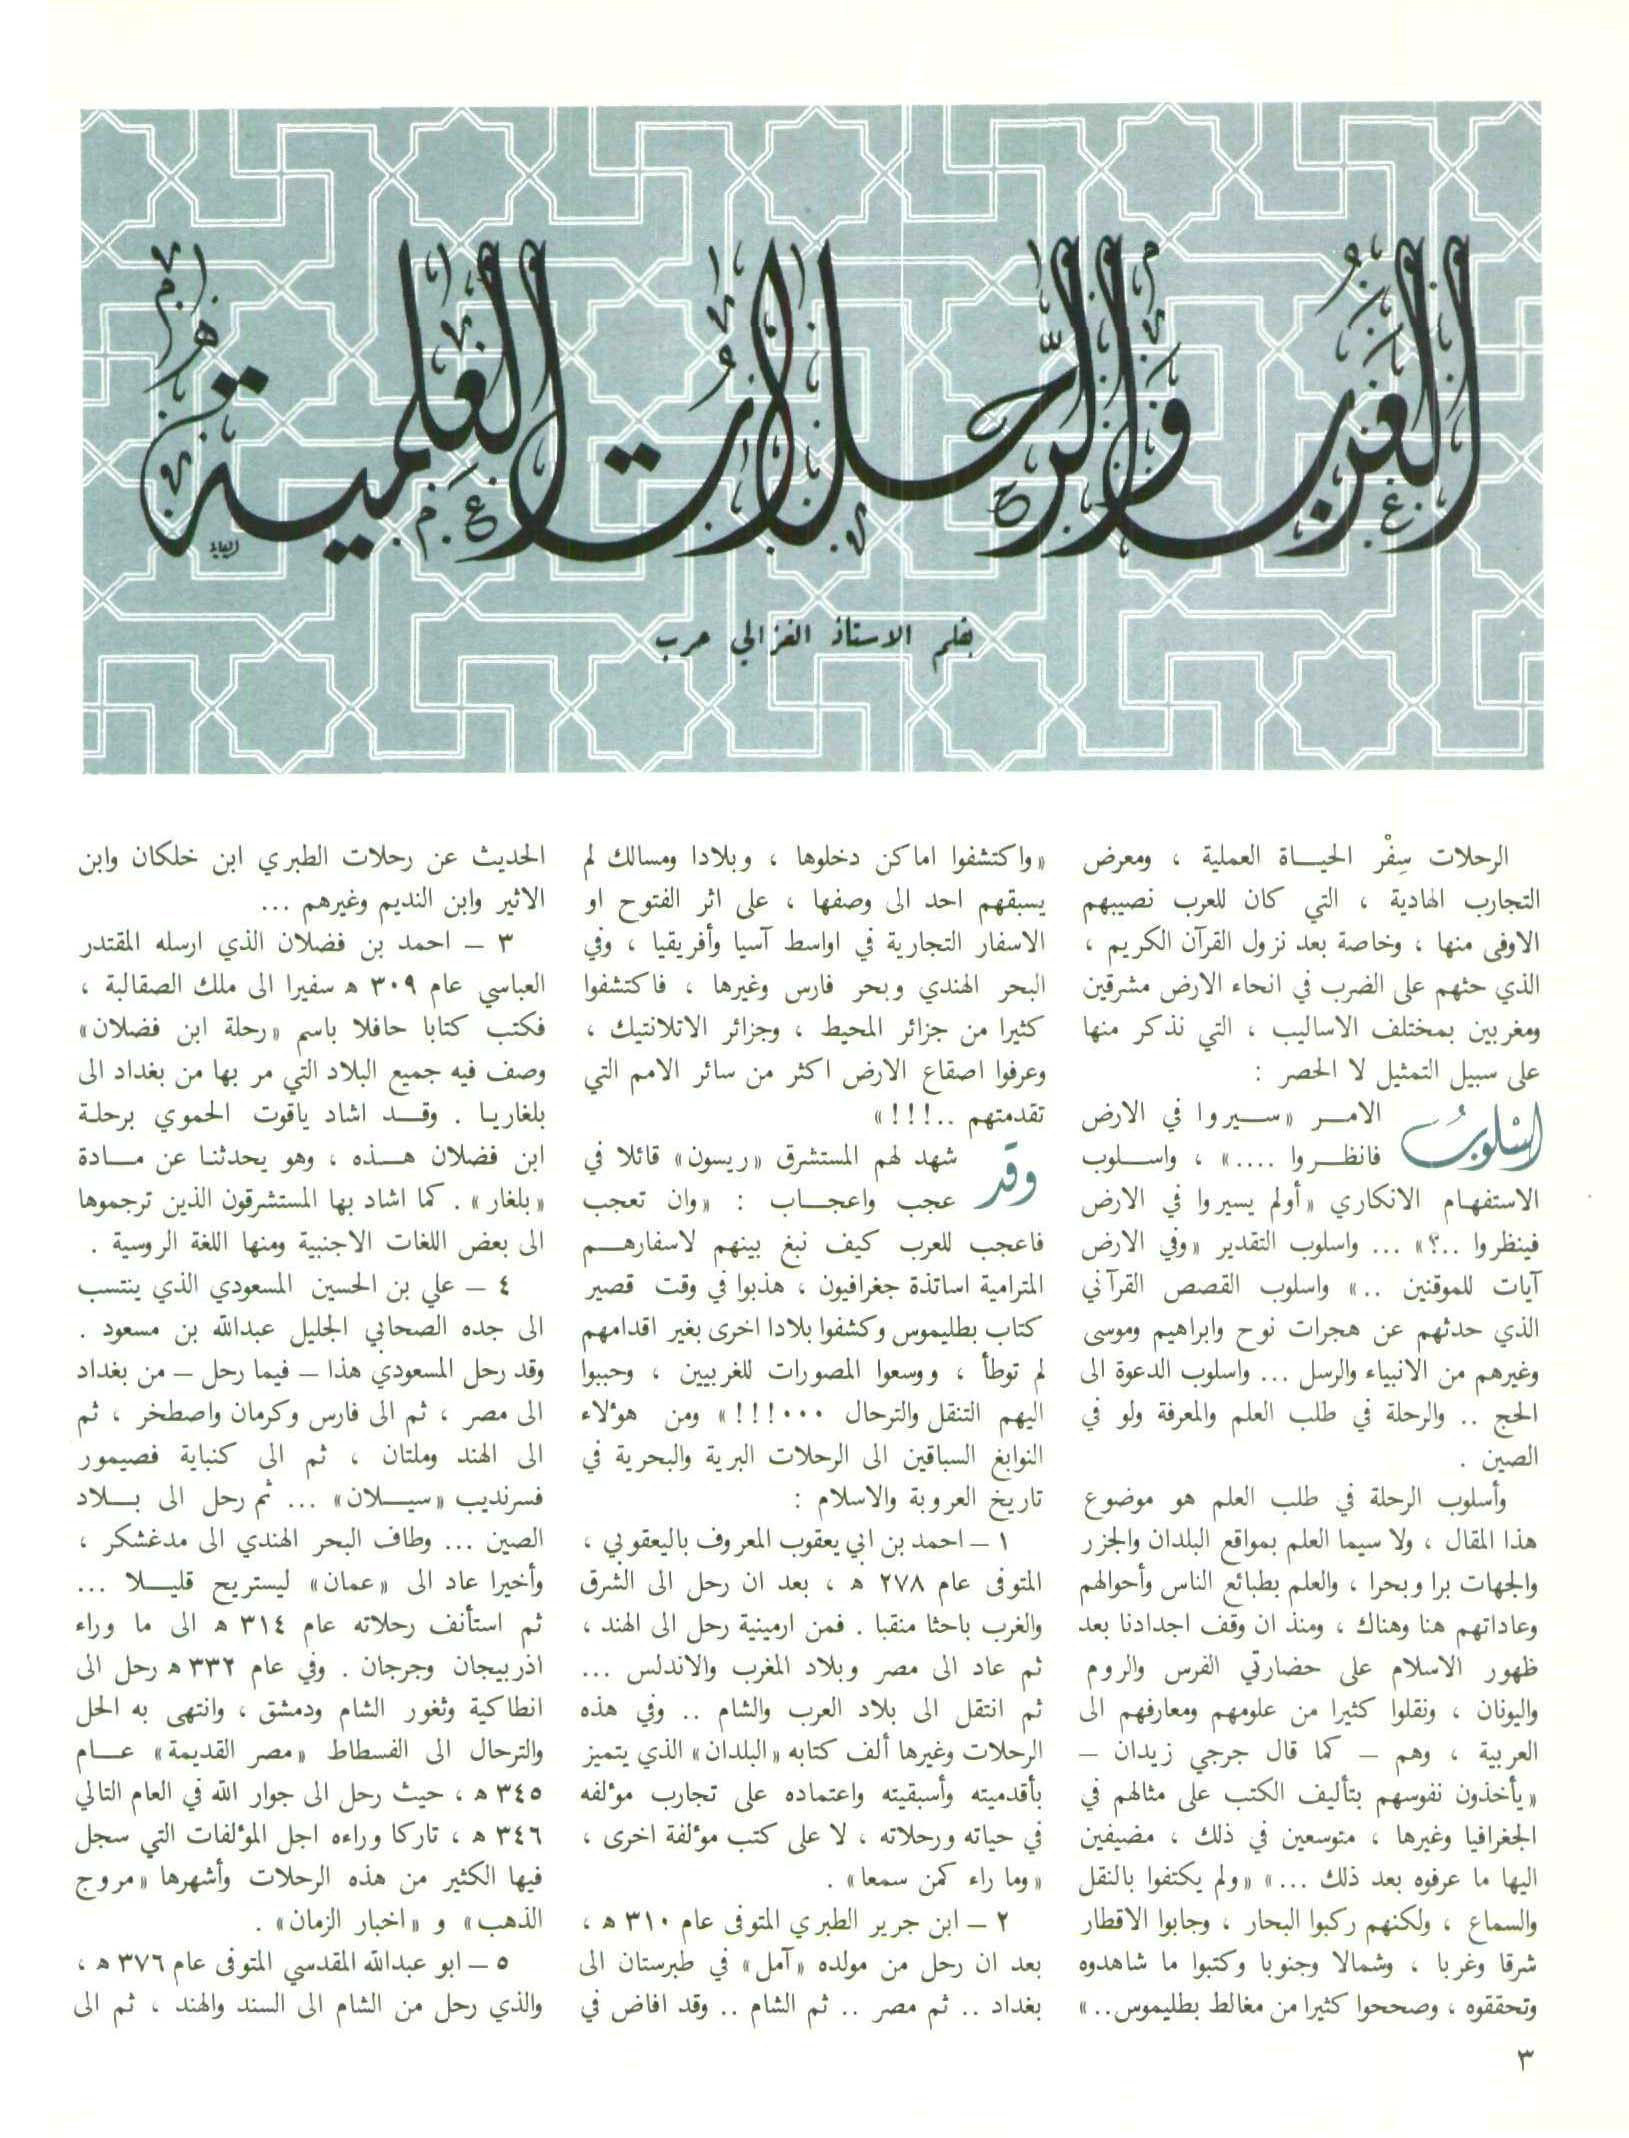 العرب والرحلات العلمية
بقلم الاستاذ الغزالي حرب
الرحلات سِفْر الحيــاة العملية ، ومعرض
التجارب الهادية ، التي كان للعرب نصيبهم
الاوفى منها ، وخاصة بعد نزول القرآن الكريم ،
الذي حثهم على الضرب في انحاء الارض مشرقين
ومغربين بمختلف الاساليب ، التي نذكر منها
على سبيل التمثيل لا الحصر :
اسْلوبُ الامــر «ســيروا في الارض
فانظــروا ....» ، واســلوب
الاستفهام الانكاري «أولم يسيروا في الارض
فينظروا ..؟» ... واسلوب التقدير «وفي الارض
آيات للموقنين ..» واسلوب القصص القرآني
الذي حدثهم عن هجرات نوح وابراهيم وموسى
وغيرهم من الانبياء والرسل ... واسلوب الدعوة الى
الحج .. والرحلة في طلب العلم والمعرفة ولو في
الصين .
وأسلوب الرحلة في طلب العلم هو موضوع
هذا المقال ، ولا سيما العلم بمواقع البلدان والجزر
والجهات برا وبحرا ، والعلم بطبائع الناس وأحوالهم
وعاداتهم هنا وهناك ، ومنذ ان وقف اجدادنا بعد
ظهور الاسلام على حضارتي الفرس والروم
واليونان ، ونقلوا كثيرا من علومهم ومعارفهم الى
العربية ، وهم – كما قال جرجي زيدان –
«يأخذون نفوسهم بتأليف الكتب على مثالهم في
الجغرافيا وغيرها ، متوسعين في ذلك ، مضيفين
اليها ما عرفوه بعد ذلك ...» «ولم يكتفوا بالنقل
والسماع ، ولكنهم ركبوا البحار ، وجابوا الاقطار
شرقا وغربا ، وشمالا وجنوبا وكتبوا ما شاهدوه
وتحققوه ، وصححوا كثيرا من مغالط بطليموس..»
«واكتشفوا اماكن دخلوها ، وبلادا ومسالك لم
يسبقهم احد الى وصفها ، على اثر الفتوح او
الاسفار التجارية في اواسط آسيا وأفريقيا ، وفي
البحر الهندي وبحر فارس وغيرها ، فاكتشفوا
كثيرا من جزائر المحيط ، وجزائر الاتلانتيك ،
وعرفوا اصقاع الارض اكثر من سائر الامم التي
تقدمتهم ..!!!»
وقد شهد لهم المستشرق «ريسون» قائلا في
عجب واعجــاب : «وان تعجب
فاعجب للعرب كيف نبغ بينهم لاسفارهــم
المترامية اساتذة جغرافيون ، هذبوا في وقت قصير
كتاب بطليموس وكشفوا بلادا اخرى بغير اقدامهم
لم توطأ ، ووسعوا المصورات للغربيين ، وحببوا
اليهم التنقل والترحال ...!!!» ومن هؤلاء
النوابغ السباقين الى الرحلات البرية والبحرية في
تاريخ العروبة والاسلام :
١ – احمد بن ابي يعقوب المعروف باليعقوبي ،
المتوفى عام ٢٧٨ ه ، بعد ان رحل الى الشرق
والغرب باحثا منقبا . فمن ارمينية رحل الى الهند ،
ثم عاد الى مصر وبلاد المغرب والاندلس ...
ثم انتقل الى بلاد العرب والشام .. وفي هذه
الرحلات وغيرها ألف كتابه «البلدان» الذي يتميز
بأقدميته وأسبقيته واعتماده على تجارب مؤلفه
في حياته ورحلاته ، لا على كتب مؤلفة اخرى ،
«وما راء كمن سمعا» .
٢ – ابن جرير الطبري المتوفى عام ٣١٠ ه ،
بعد ان رحل من مولده «آمل» في طبرستان الى
بغداد .. ثم مصر .. ثم الشام .. وقد افاض في
الحديث عن رحلات الطبري ابن خلكان وابن
الاثير وابن النديم وغيرهم ...
٣ – احمد بن فضلان الذي ارسله المقتدر
العباسي عام ٣٠٩ ه سفيرا الى ملك الصقالبة ،
فكتب كتابا حافلا باسم «رحلة ابن فضلان»
وصف فيه جميع البلاد التي مر بها من بغداد الى
بلغاريـا . وقــد اشاد ياقوت الحموي برحلـة
ابن فضلان هــذه ، وهو يحدثنـا عن مــادة
«بلغار» . كما اشاد بها المستشرقون الذين ترجموها
الى بعض اللغات الاجنبية ومنها اللغة الروسية .
٤ – علي بن الحسين المسعودي الذي ينتسب
الى جده الصحابي الجليل عبدالله بن مسعود .
وقد رحل المسعودي هذا – فيما رحل – من بغداد
الى مصر ، ثم الى فارس وكرمان واصطخر ، ثم
الى الهند وملتان ، ثم الى كنباية فصيمور
فسرنديب «سيــلان» ... ثم رحل الى بــلاد
الصين ... وطاف البحر الهندي الى مدغشكر ،
وأخيرا عاد الى «عمان» ليستريح قليــلا ...
ثم استأنف رحلاته عام ٣١٤ ه الى ما وراء
اذربيجان وجرجان . وفي عام ٣٣٢ ه رحل الى
انطاكية وثغور الشام ودمشق ، وانتهى به الحل
والترحال الى الفسطاط «مصر القديمة» عــام
٣٤٥ ه ، حيث رحل الى جوار الله في العام التالي
٣٤٦ ه ، تاركا وراءه اجل المؤلفات التي سجل
فيها الكثير من هذه الرحلات وأشهرها «مروج
الذهب» و «اخبار الزمان» .
٥ – ابو عبدالله المقدسي المتوفى عام ٣٧٦ ه ،
والذي رحل من الشام الى السند والهند ، ثم الى
٣